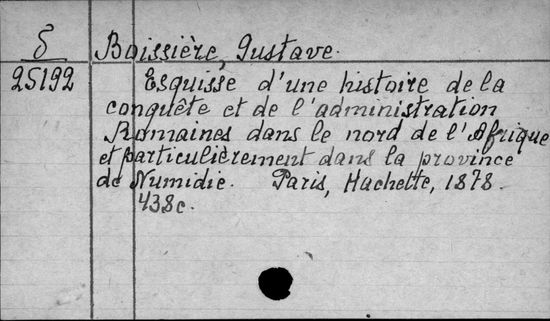 δ Boissière, Gustave.
25192 Esquisse d'une histoire de la
conquête et de l'administration
Romaines dans le nord de l'Afrique
et particulièrement dans la province
de Numidie. Paris, Hachette, 1878.
438c.